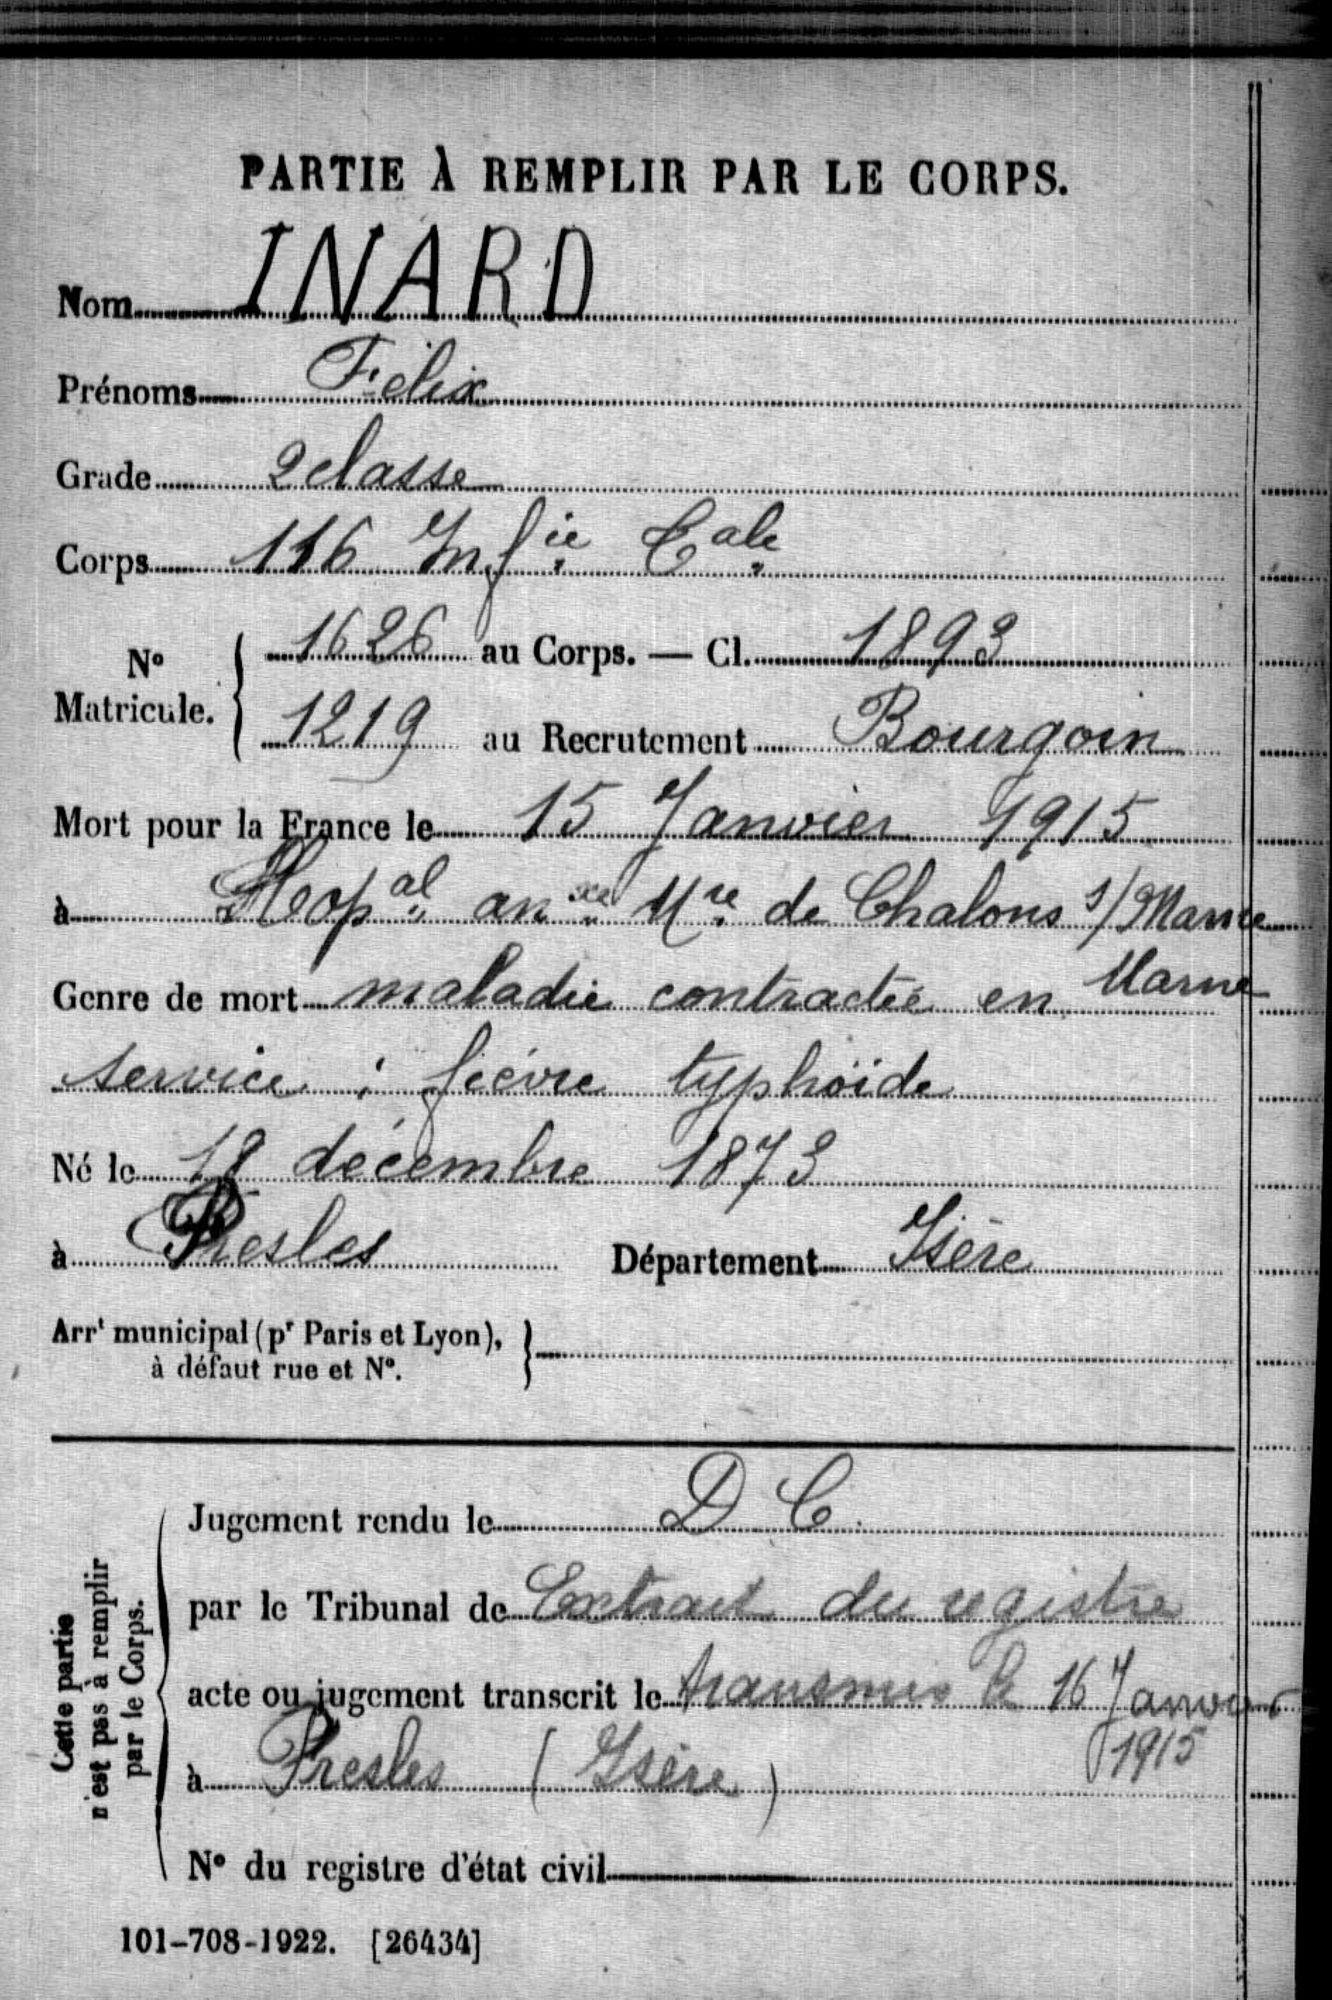 PARTIE À REMPLIR PAR LE CORPS.
Nom INARD
Prénoms Félix
Grade 2 classe
Corps 116 Inf ie Cale
N° Matricule. 1626 au Corps. — Cl. 1893
1219 au Recrutement Bourgoin
Mort pour la France le 15 Janvier 1915
à Hop al an xe Mre de Chalons s/Marne
Marne
Genre de mort maladie contractée en
service : fièvre typhoïde
Né le 18 décembre 1873
à Presles Département Isère
Arrt municipal (pr Paris et Lyon),
à défaut rue et N°.
Cette partie
n'est pas à remplir
par le Corps.
Jugement rendu le D C
par le Tribunal de Extrait du registre
acte ou jugement transcrit le transmis le 16 Janvier
1915
à Presles (Isère)
N° du registre d'état civil
101-708-1922. [26434]